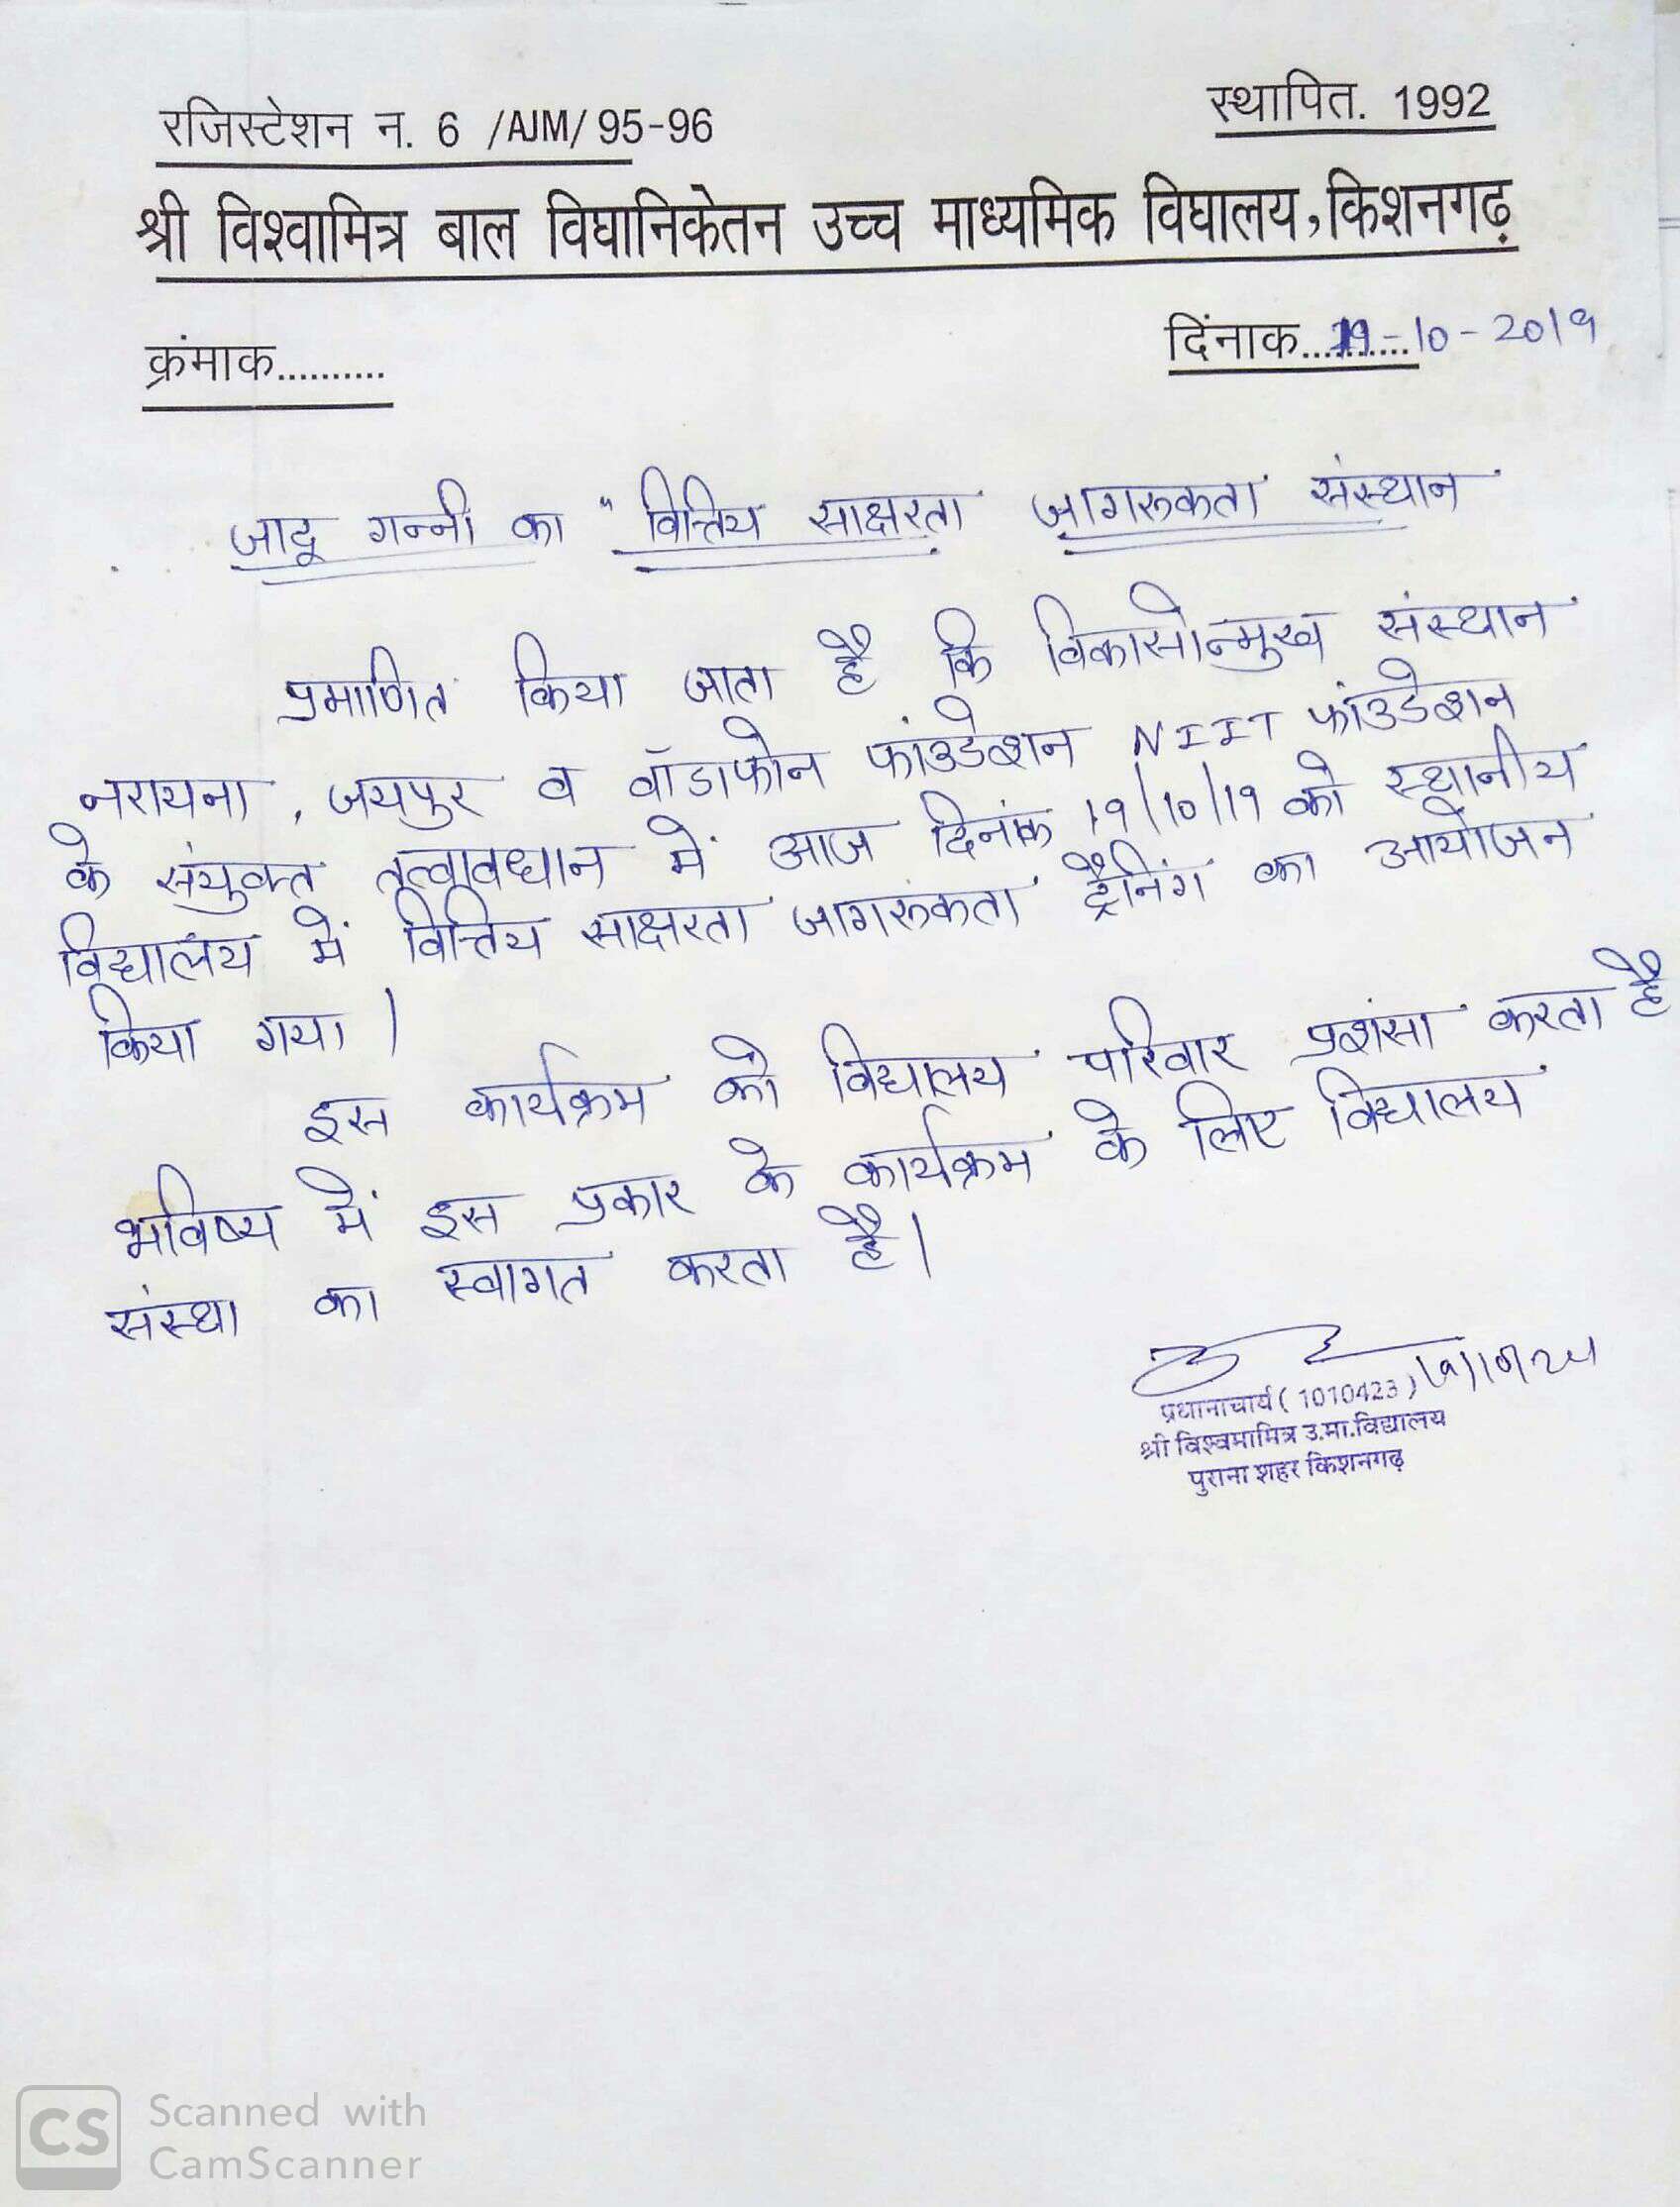 रजिस्टेशन न. 6 /AJM/ 95-96
स्थापित. 1992
श्री विश्वामित्र बाल विघानिकेतन उच्च माध्यमिक विघालय,किशनगढ़
क्रंमाक..........
दिंनाक..........19-10-2019
जादू गन्नी का " वित्तिय साक्षरता जागरुकता संस्थान
प्रमाणित किया जाता है कि विकासोन्मुख संस्थान
नरायना, जयपुर व वॉडाफोन फांउडेशन NIIT फांउडेशन
के संयुक्त तत्वावधान में आज दिनांक 19/10/19 को स्थानीय
विद्यालय में वित्तिय साक्षरता जागरुकता ट्रैनिंग का आयोजन
किया गया।
इस कार्यक्रम की विद्यालय परिवार प्रशंसा करता है
भविष्य में इस प्रकार के कार्यक्रम के लिए विद्यालय
संस्था का स्वागत करता है।
प्रधानाचार्य ( 1010423 )
श्री विश्वमामित्र उ.मा.विद्यालय
पुराना शहर किशनगढ़
CS Scanned with
CamScanner